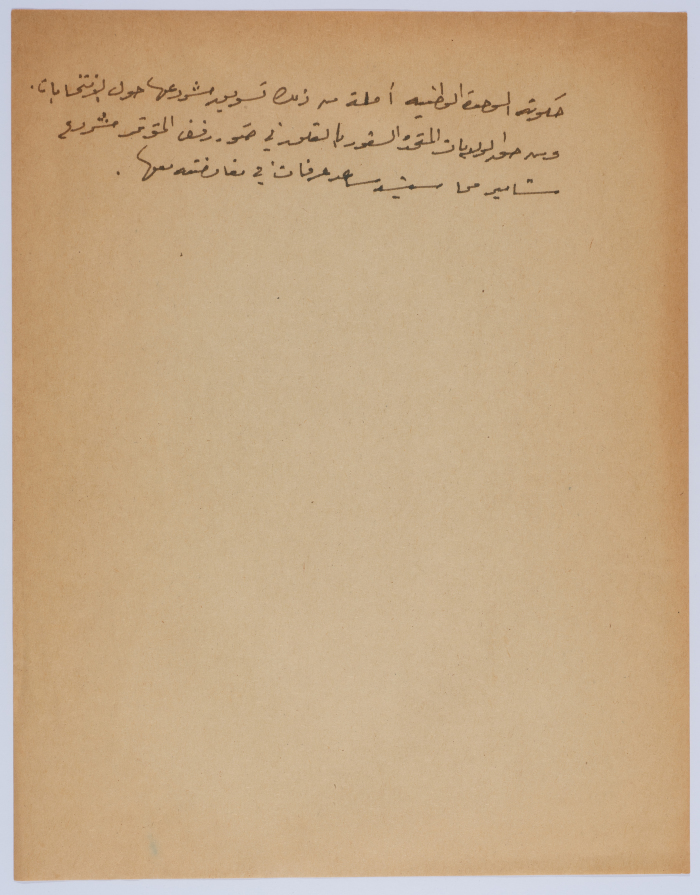 حكومة الوحدة الوطنية آملة من ذلك تسويق مشروعها حول الانتخابات.
ومن حق الولايات المتحدة الشعور بالقلق في ضوء رفض المؤتمر مشروع
شامير مما سيساعد عرفات في مفاوضته معها.